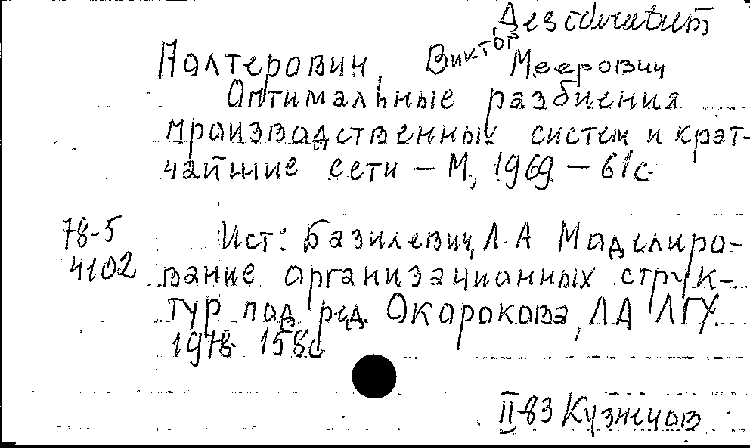 Дезideratum
Палтерович, Виктор Меерович
Оптимальные разбиения
производственных систем и крат-
чайшие сети – М, 1969 – 61с
78-5 Ист: Базилевич, Л.А Моделиро-
4102 вание организационных струк-
тур под ред. Окорокова, ЛА ЛГУ
1978 158с
II-83 Кузнецов